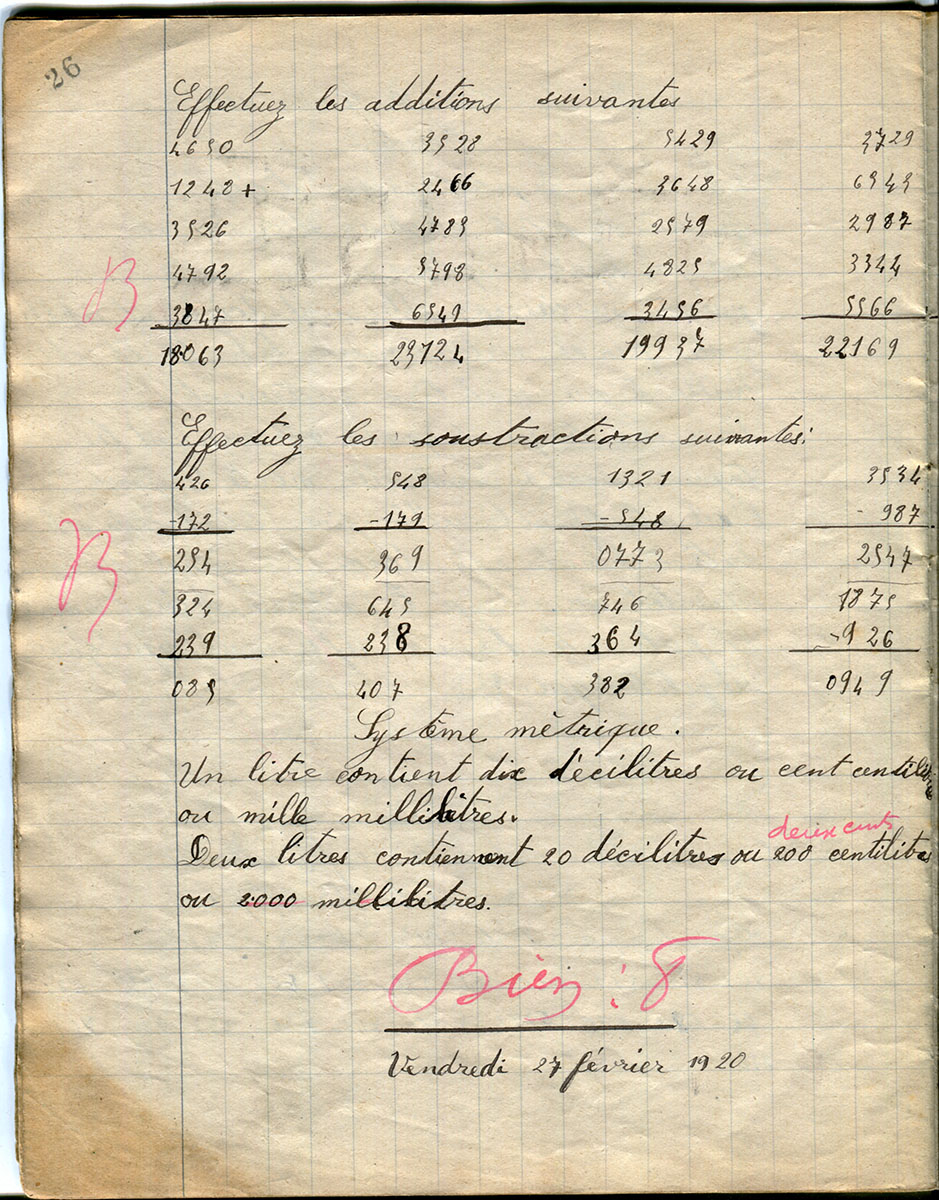 26
Effectuez les additions suivantes
4650 3528 5429 3729
1248 + 2466 3648 6543
3526 4783 2579 2987
4792 5798 4825 3344
3847 6549 3456 5566
18063 23124 19937 22169
B
Effectuez les soustractions suivantes:
426 548 1321 3534
-172 -179 -548 - 987
254 369 0773 2547
B
324 645 746 1875
239 238 364 -926
085 407 382 0949
Système métrique.
Un litre contient dix décilitres ou cent centilitres
ou mille millilitres.
deux cents
Deux litres contiennent 20 décilitres ou 200 centilitres
ou 2000 millilitres.
Bien : 8
Vendredi 27 février 1920